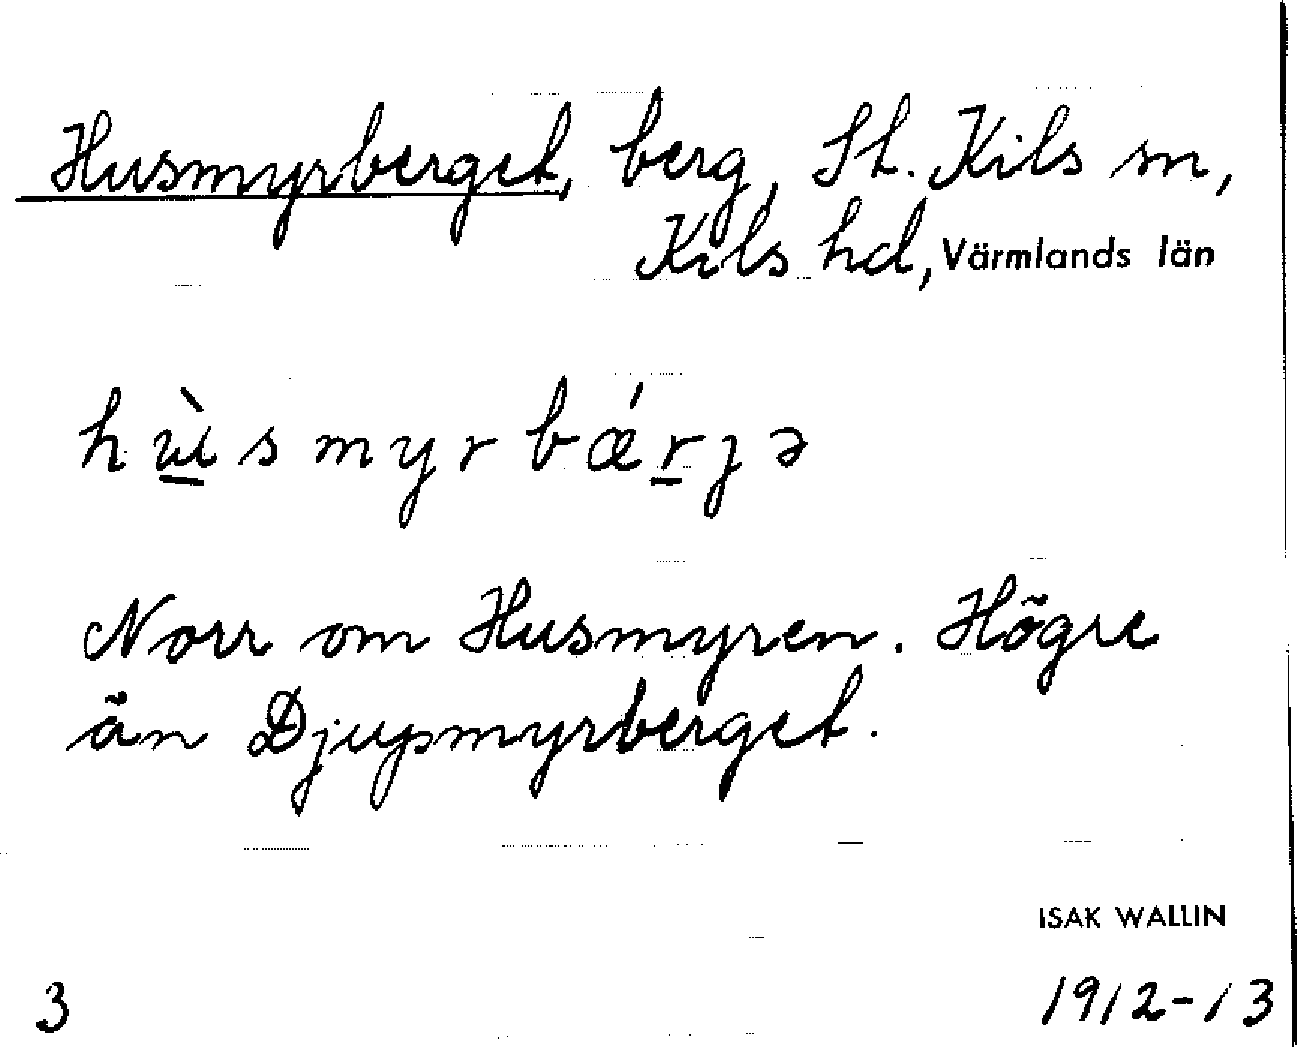 Husmyrberget, berg, St. Kils sn,
Kils hd, Värmlands län
hù̲smyrbǽr̲jə
Norr om Husmyren. Högre
än Djupmyrberget.
ISAK WALLIN
3 1912-13